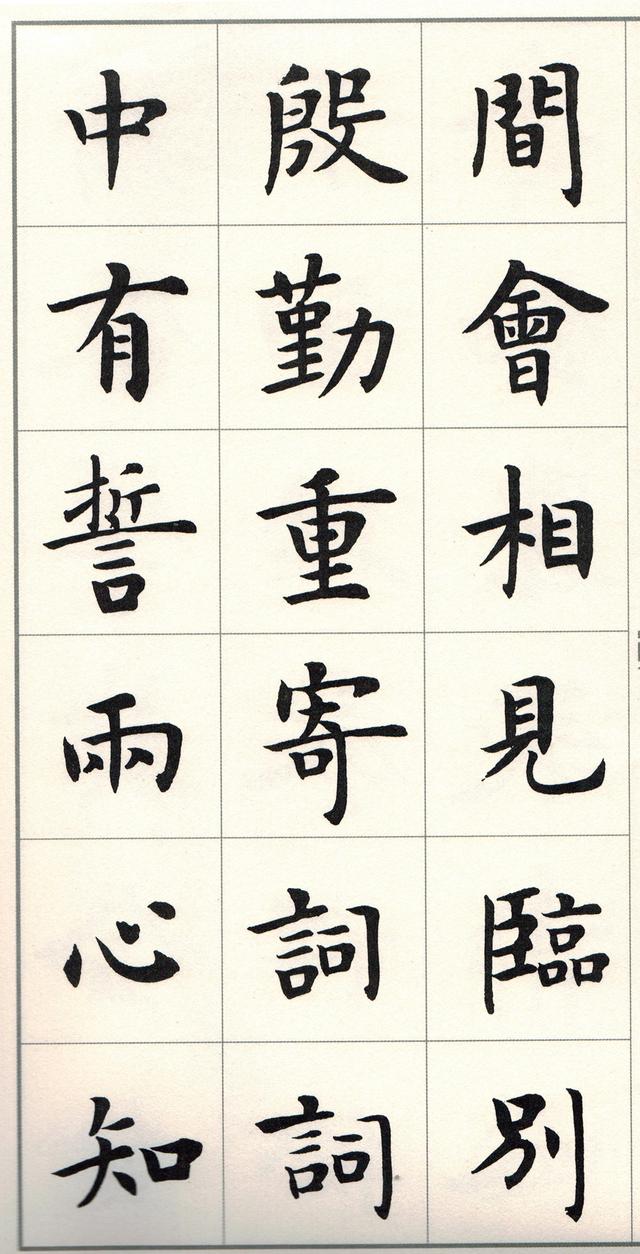 間會相見臨別
殷勤重寄詞詞
中有誓兩心知